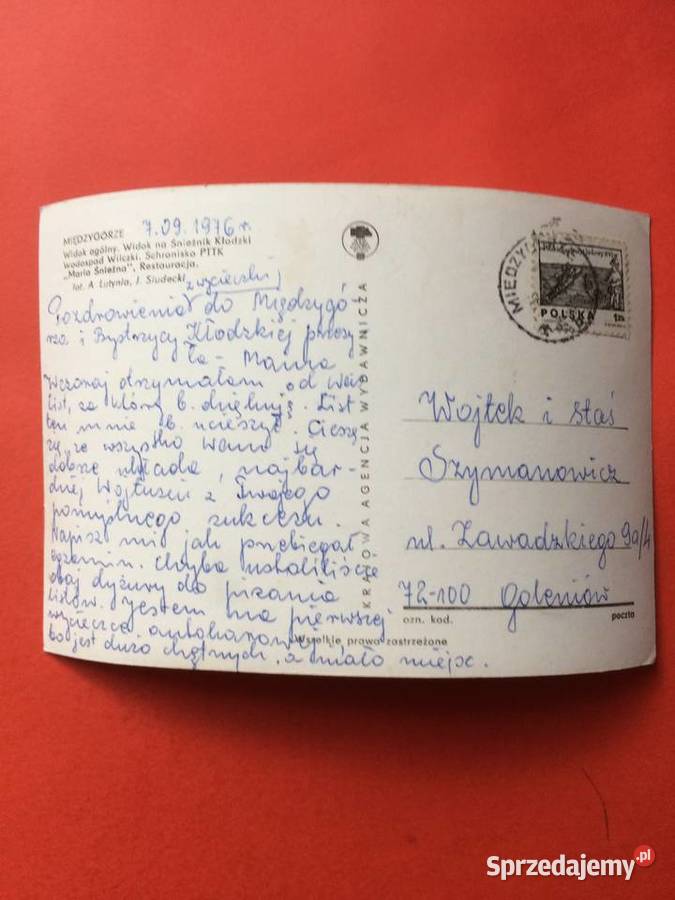 MIĘDZYGÓRZE
7.09.1976 r.
Widok ogólny. Widok na Śnieżnik Kłodzki
Wodospad Wilczki. Schronisko PTTK
„Maria Śnieżna”, Restauracja.
fot. A. Lutynia, J. Siudecki
z wycieczki
Pozdrowienia do Międzygó
rza i Bystrzycy Kłodzkiej przesy
ła -
Wczoraj otrzymałam od Was
list, za który b. dziękuję. List
ten mnie b. ucieszył. Cieszę
się, że wszystko Wam się
dobrze układa, najbar-
dziej Wojtusiu z Twojego
pomyślnego sukcesu.
Napisz mi jak przebiegał
egzamin. Chyba ustaliliście
obaj dyżury do pisania
listów. Jestem na pierwszej
wycieczce autokarowej,
bo jest dużo chętnych, a mało miejsc.
KRAJOWA AGENCJA WYDAWNICZA
Wszelkie prawa zastrzeżone
POLSKA
1zł
Wojtek i Staś
Szymanowicz
ul. Zawadzkiego 9a/4
72-100 Goleniów
ozn. kod.
poczta
Sprzedajemy.pl